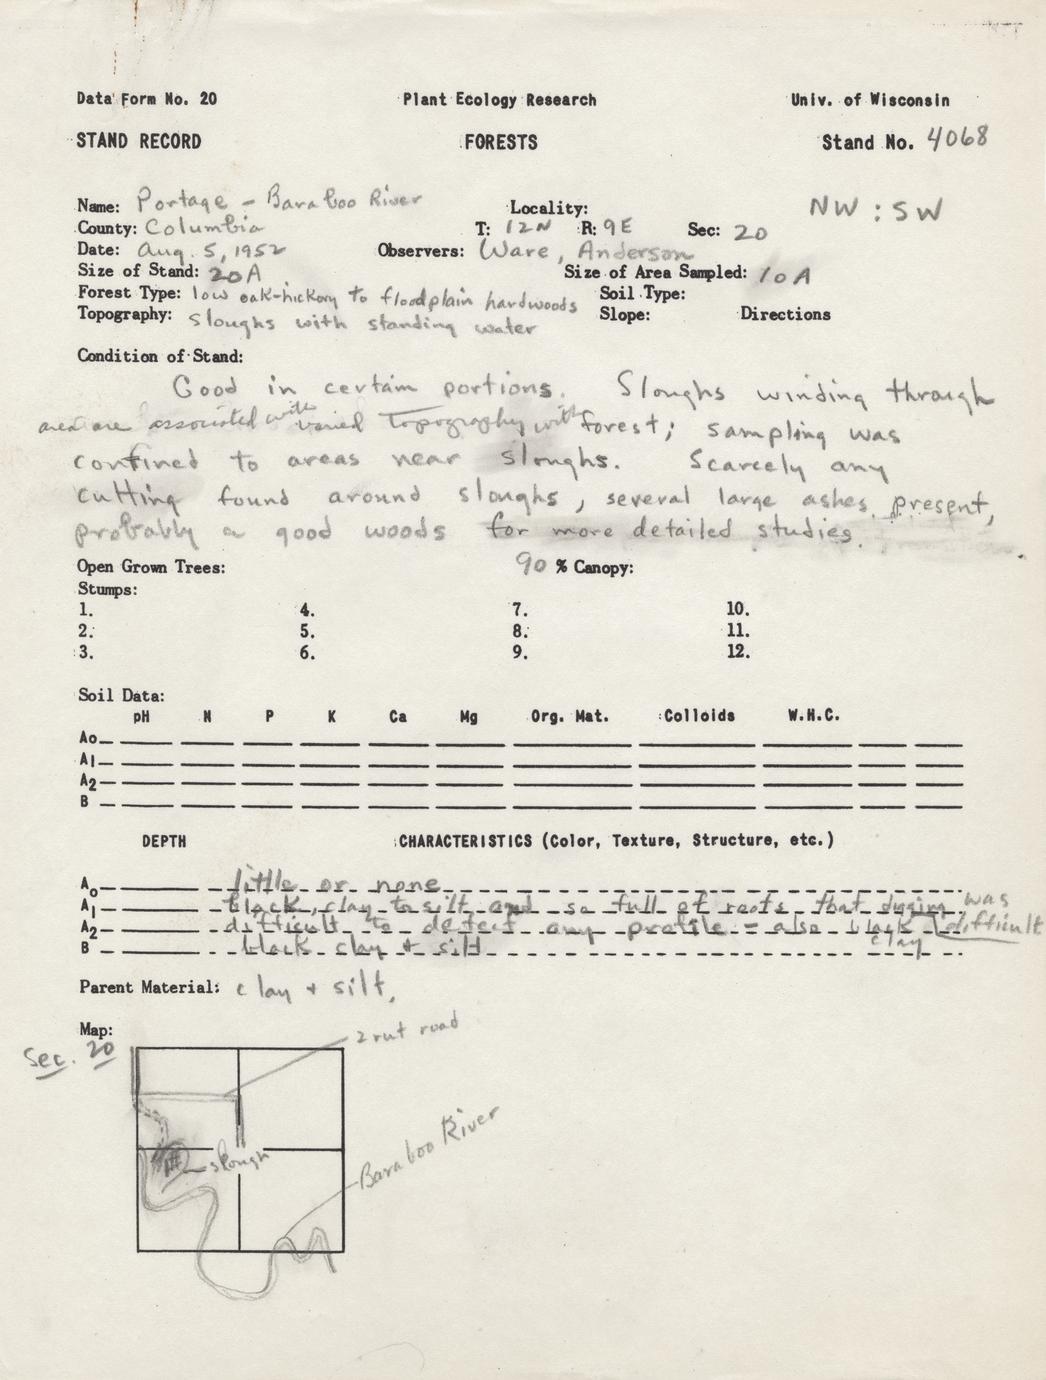 Data Form No. 20 Plant Ecology Research Univ. of Wisconsin
STAND RECORD FORESTS Stand No. 4068
Name: Portage - Baraboo River Locality: NW : SW
County: Columbia T: 12N R: 9E Sec: 20
Date: Aug. 5, 1952 Observers: Ware, Anderson
Size of Stand: 20A Size of Area Sampled: 10A
Forest Type: low oak-hickory to floodplain hardwoods Soil Type:
Topography: Sloughs with standing water Slope: Directions
Condition of Stand:
Good in certain portions. Sloughs winding through
area are associated with varied topography with forest; sampling was
confined to areas near sloughs. Scarcely any
cutting found around sloughs, several large ashes present,
probably a good woods for more detailed studies.
Open Grown Trees: 90 % Canopy:
Stumps:
1. 4. 7. 10.
2. 5. 8. 11.
3. 6. 9. 12.
Soil Data:
pH N P K Ca Mg Org. Mat. Colloids W.H.C.
Ao
A1
A2
B
DEPTH CHARACTERISTICS (Color, Texture, Structure, etc.)
Ao little or none
A1 black, clay to silt and so full of roots that digging was difficult
A2 difficult to detect any profile - also black clay
B black clay + silt
Parent Material: clay + silt.
Map:
Sec. 20
2 rut road
slough
Baraboo River